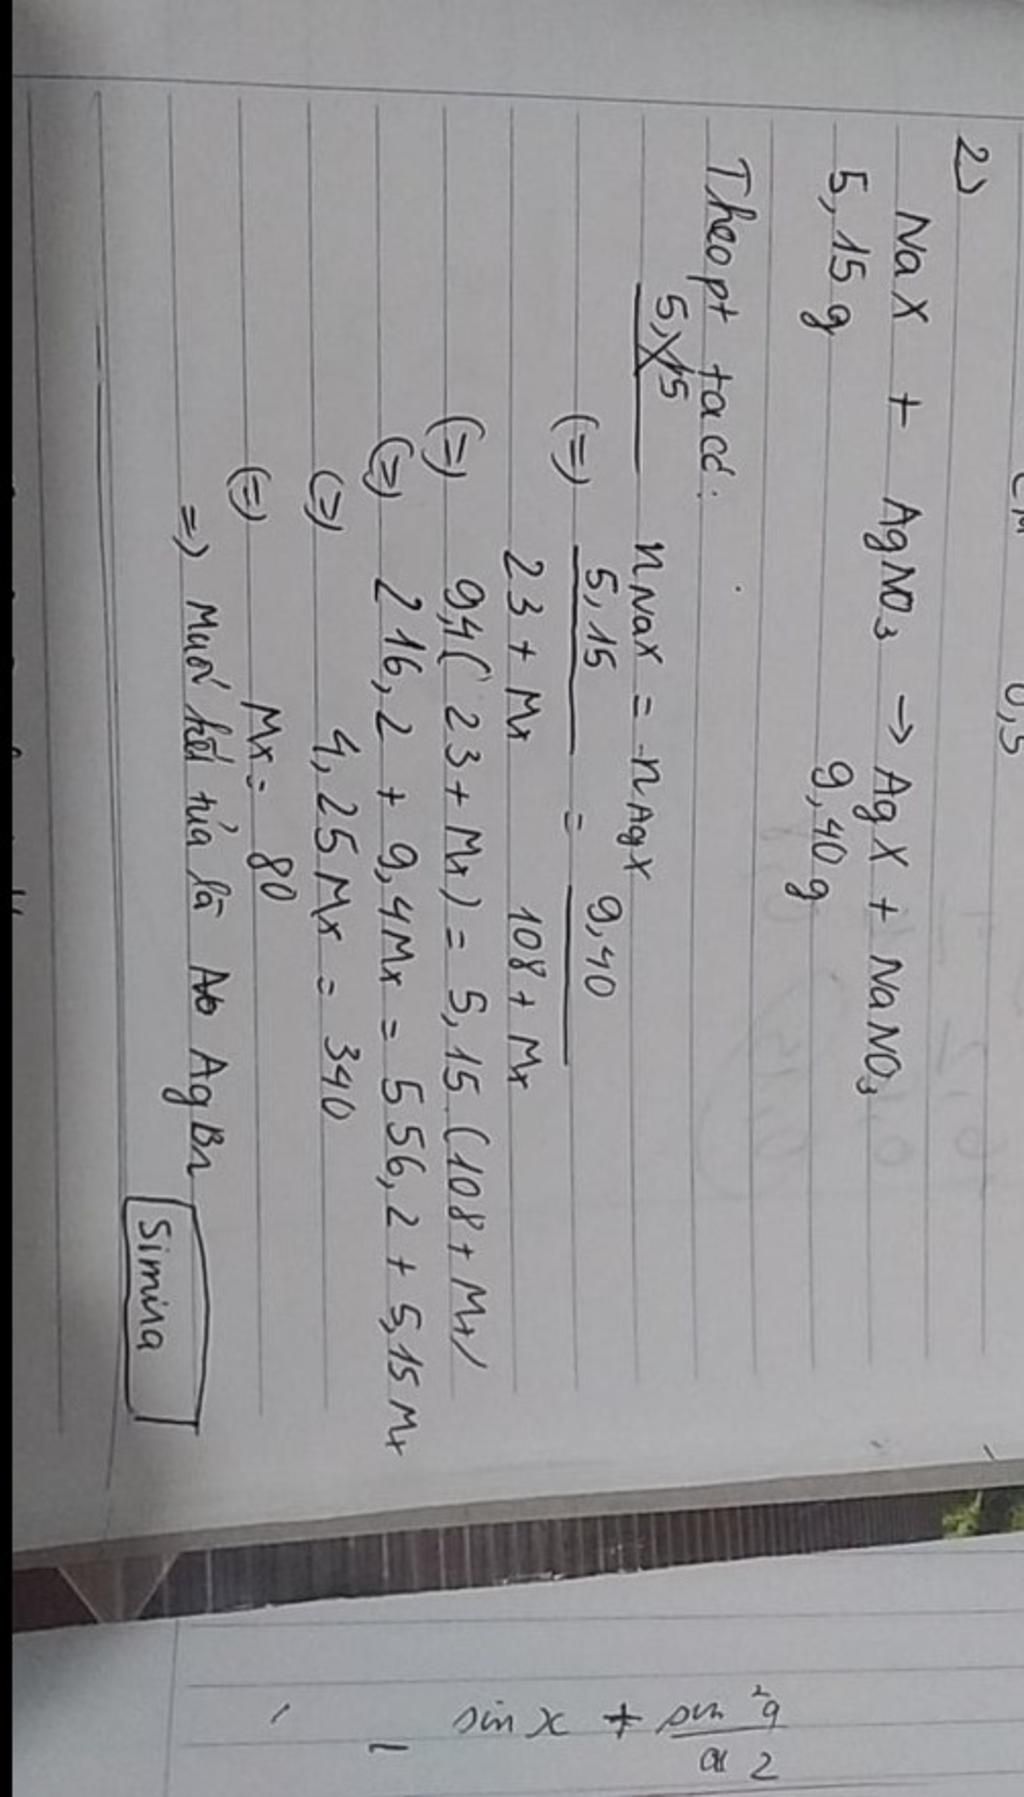 0,5
2)
NaX + AgNO₃ → AgX + NaNO₃
5,15g 9,40g
Theo pt ta có:
nNaX = nAgX
(=) 5,15 / 23 + Mx = 9,40 / 108 + Mx
(=) 9,4(23 + Mx) = 5,15.(108 + Mx)
(=) 216,2 + 9,4Mx = 556,2 + 5,15Mx
(=) 4,25Mx = 340
(=) Mx = 80
=) Muối kết tủa là AgBr
Simina
sin x +
2